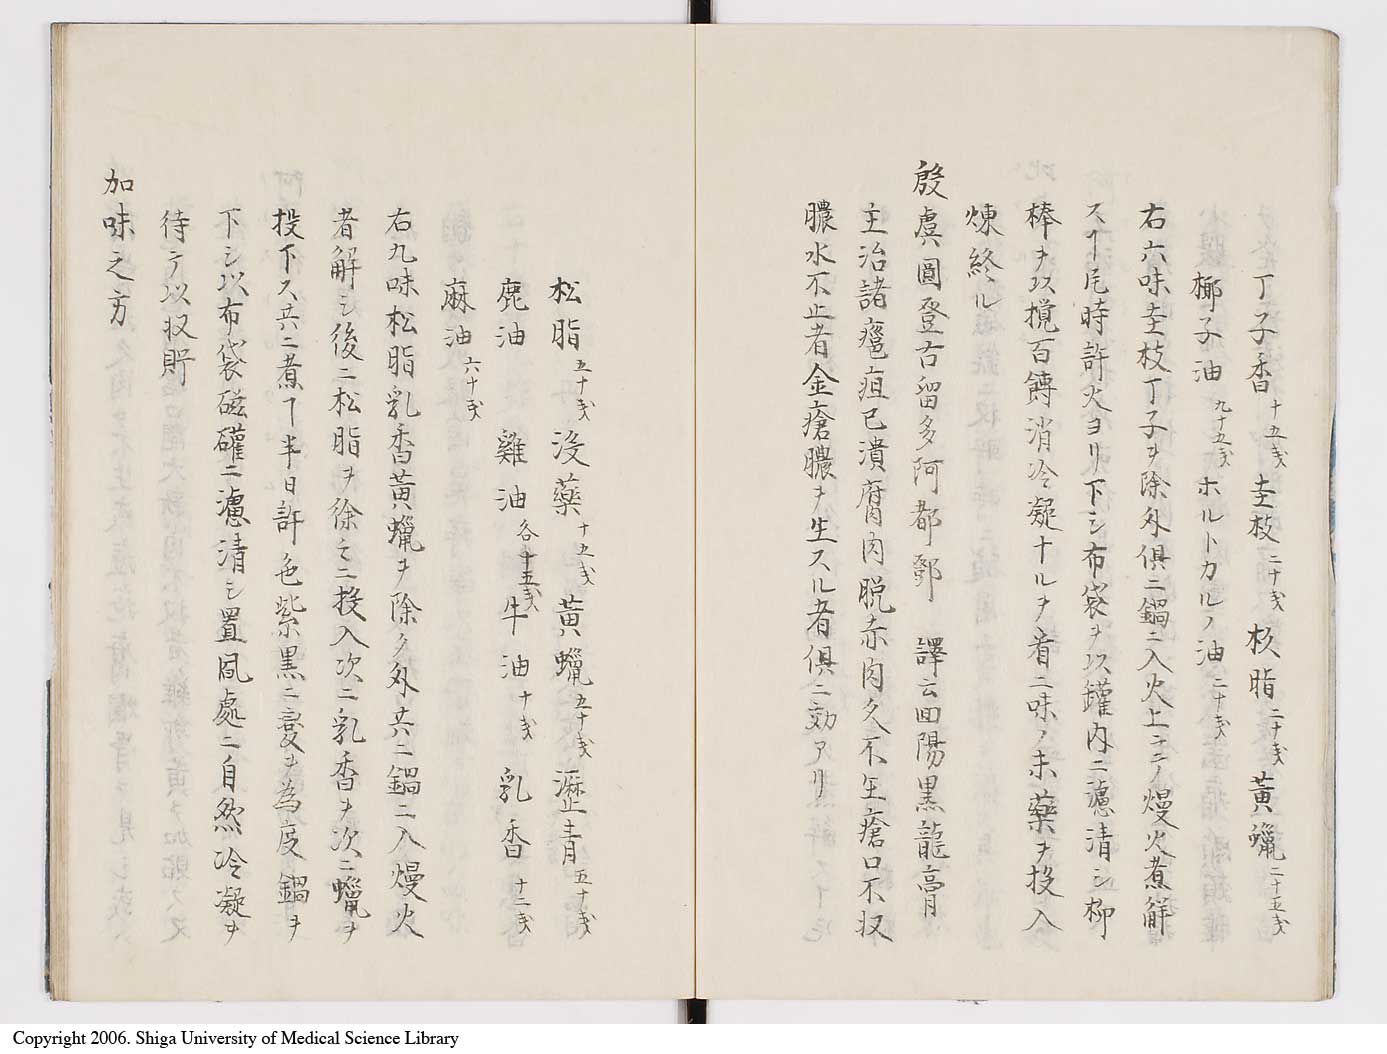 丁子香十五戔 圭枝二十戔 杉脂二十戔 黄蠟二十五戔
椰子油九十五戔 ホルトカルノ油二十戔
右六味圭枝丁子ヲ除外倶ニ鍋ニ入火上ニテ熳火煮解
スヿ尼時許火ヨリ下シ布袋ヲ以罐内ニ濾清シ柳
棒ヲ以攪百餺消冷凝ナルヲ看二味ノ末藥ヲ投入
煉終ル
殷虞圓登古留多阿都鄧 譯云回陽黒龍膏
主治諸癰疽已潰腐肉脱赤肉久不生瘡口不収
膿水不止者金瘡膿ヲ生スル者倶ニ効アリ
松脂五十戔 没藥十五戔 黄蠟五十戔 瀝青五十戔
鹿油 雞油各十五戔 牛油十戔 乳香十二戔
麻油六十戔
右九味松脂乳香黄蠟ヲ除ク外共ニ鍋ニ入熳火
者解シ後ニ松脂ヲ徐々ニ投入次ニ乳香ヲ次ニ蠟ヲ
投下ス共ニ煮ヿ半日許色紫黒ニ変ヲ為度鍋ヲ
下シ以布袋磁礶ニ濾清シ置風處ニ自然冷凝ヲ
待テ以収貯
加味之方
Copyright 2006. Shiga University of Medical Science Library